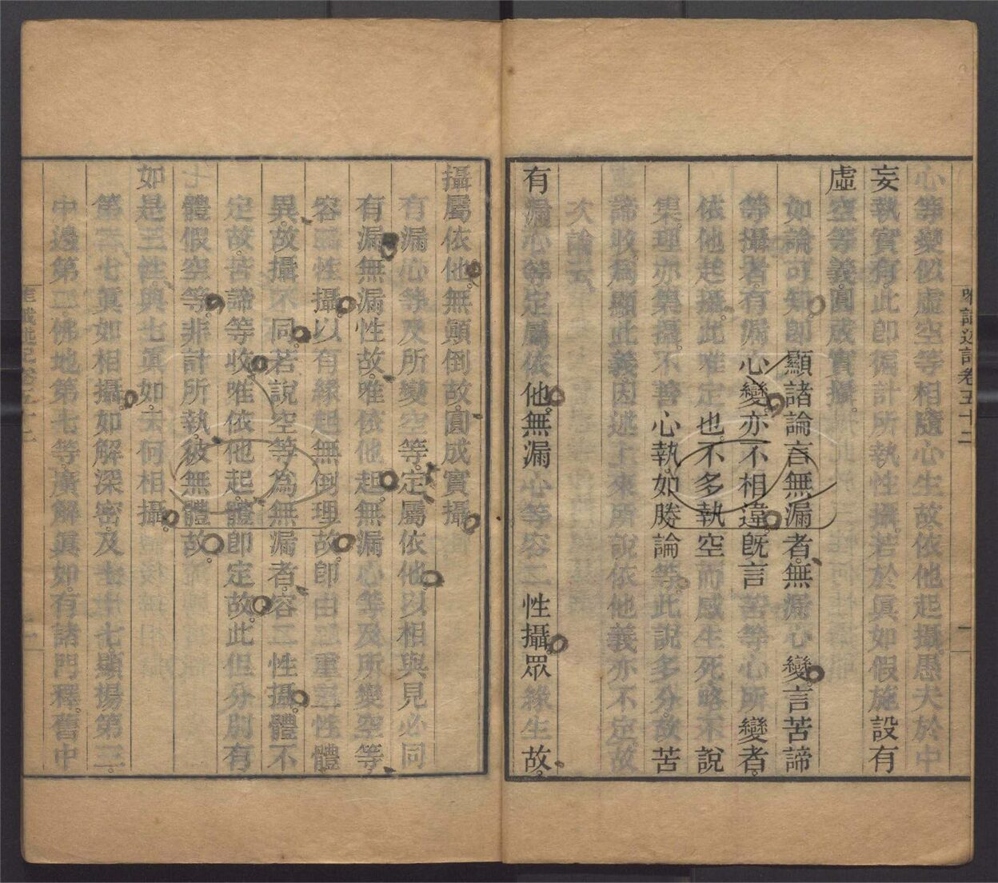 心等變似虛空等相隨心生故依他起攝愚夫於中
妄執實有此卽徧計所執性攝若於眞如假施設有
虛空等義圓成實攝
如論可知卽顯諸論言無漏者無漏心變言苦諦
等攝者有漏心變亦不相違旣言苦等心所變者
依他起攝此唯定也不多執空而感生死略不說
集理亦集攝不善心執如勝論等此說多分故苦
諦收爲顯此義因述上來所說依他義亦不定故
次論云
有漏心等定屬依他無漏心等容二性攝眾緣生故
攝屬依他無顚倒故圓成實攝
有漏心等及所變空等定屬依他以相與見必同
有漏無漏性故唯依他起無漏心等及所變空等
容二性攝以有緣起無倒理故卽由二重三性體
異故攝不同若說空等爲無漏者容二性攝體不
定故苦諦等收唯依他起體卽定故此但分別有
體假空等非計所執彼無體故
如是三性與七眞如云何相攝
第三七眞如相攝如解深密及七十七顯揚第三
中邊第二佛地第七等廣解眞如有諸門釋舊中
唯識述記卷五十二
一